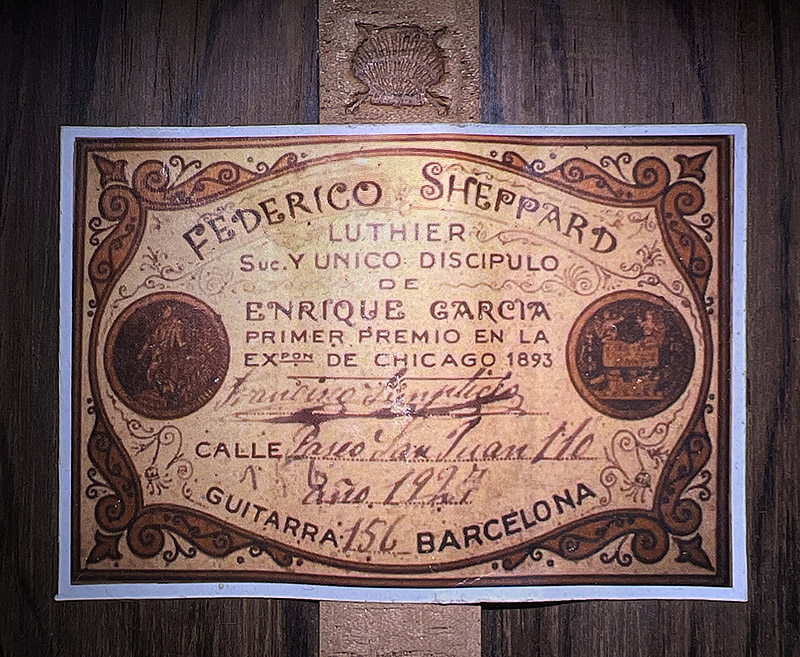 FEDERICO SHEPPARD
LUTHIER
Suc. Y UNICO DISCIPULO
DE
ENRIQUE GARCIA
PRIMER PREMIO EN LA
EXPON DE CHICAGO 1893
Francisco Simplicio
CALLE Paseo San Juan 110
Año 1927
GUITARRA 156 BARCELONA